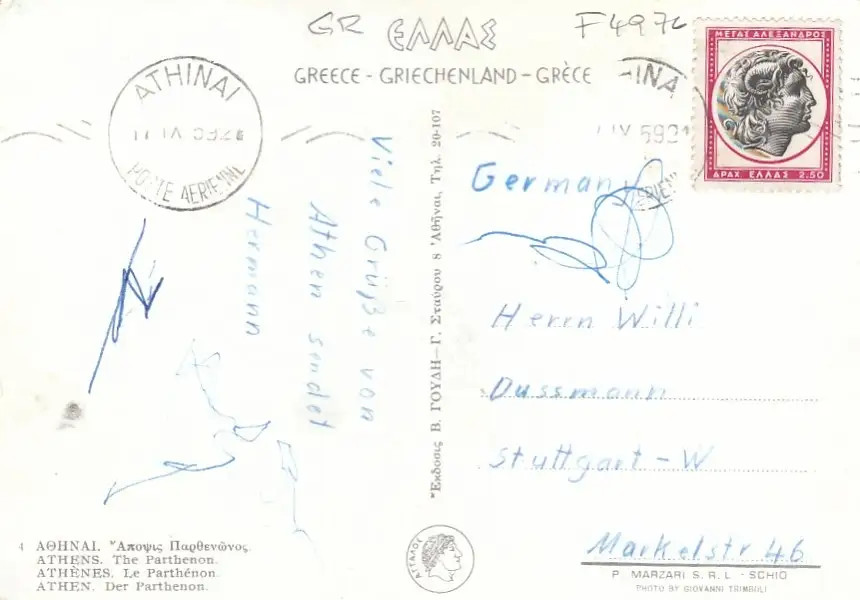 GR
F497c
ΕΛΛΑΣ
GREECE - GRIECHENLAND - GRÈCE
ΜΕΓΑΣ ΑΛΕΞΑΝΔΡΟΣ
ΔΡΑΧ. ΕΛΛΑΣ 2.50
ATHINAI
POSTE AERIENNE
Viele Grüße von
Athen sendet
Hermann
Ἔκδοσις Β. ΓΟΥΔΗ—Γ. Σταύρου 8 Ἀθῆναι, Τηλ. 20-107
Germany
Herrn Willi
Dussmann
Stuttgart - W
Markelstr 46
P. MARZARI S.R.L. - SCHIO
PHOTO BY GIOVANNI TRIMBOLI
ΑΤΤΑΛΟΣ
4 ΑΘΗΝΑΙ. Ἄποψις Παρθενῶνος.
ATHENS. The Parthenon.
ATHÈNES. Le Parthénon.
ATHEN. Der Parthenon.